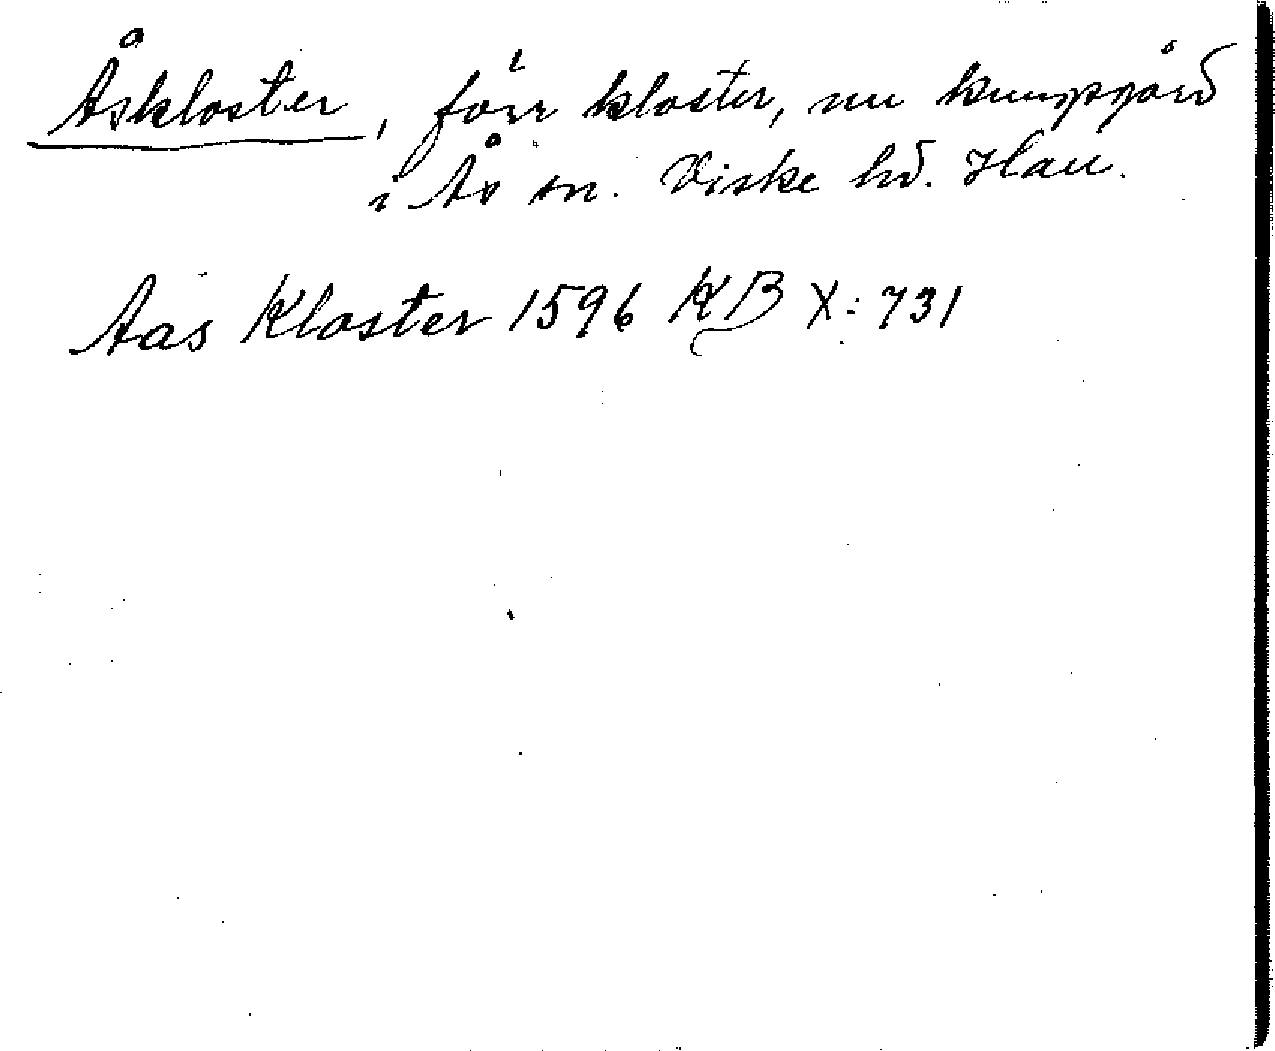 Åskloster, förr kloster, nu kungsgård
i Ås sn. Viske hd. Hall.
Aas Kloster 1596 KB X: 731